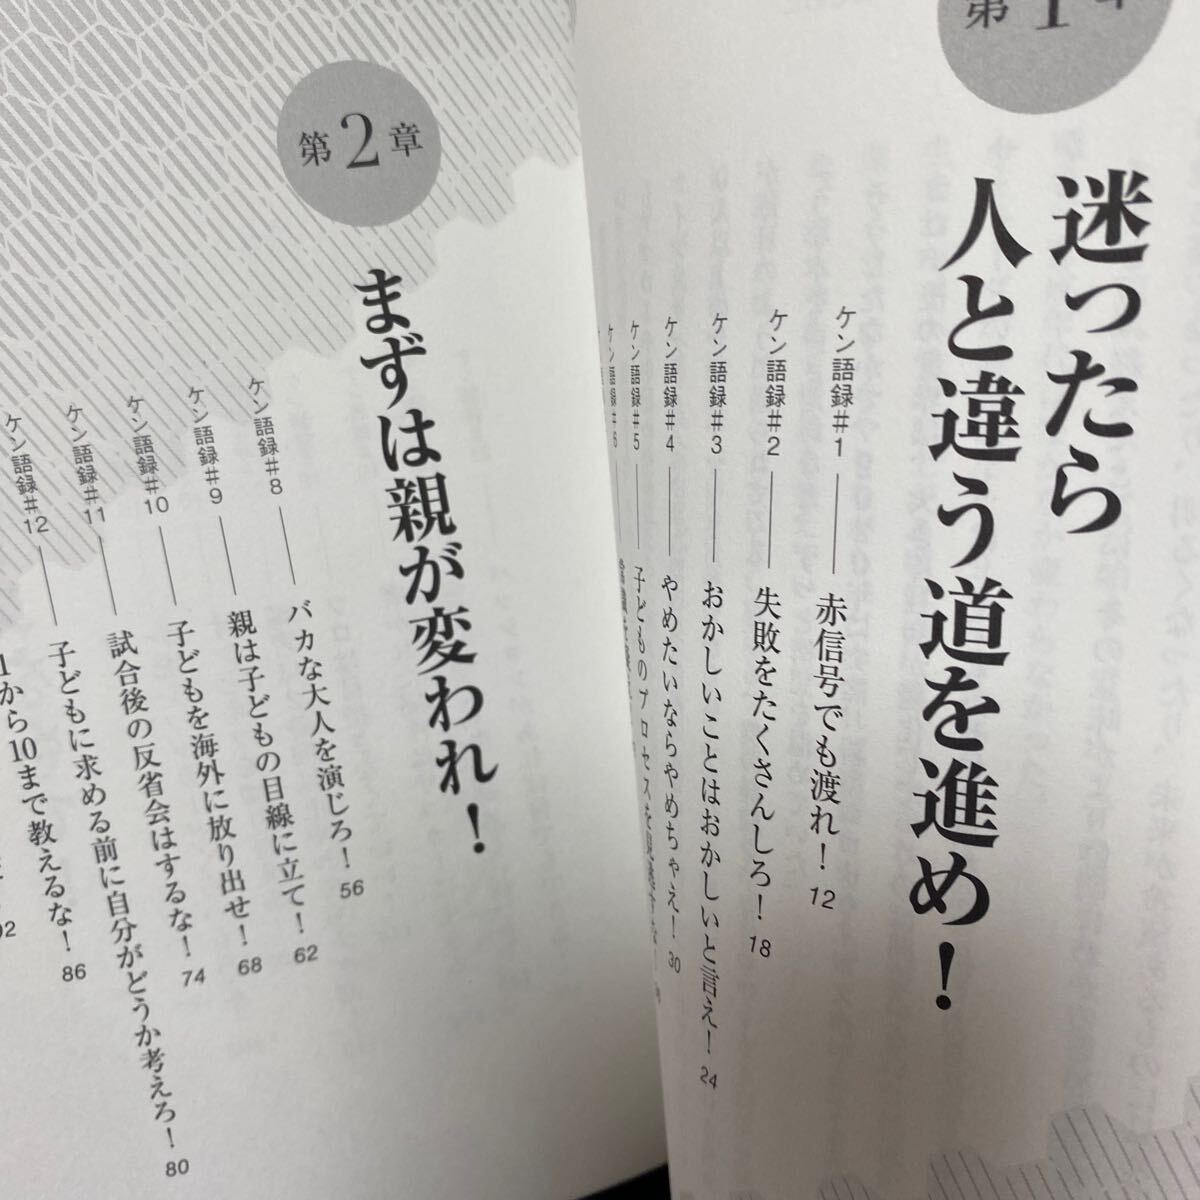 第1章
迷ったら
人と違う道を進め!
ケン語録#1 赤信号でも渡れ! 12
ケン語録#2 失敗をたくさんしろ! 18
ケン語録#3 おかしいことはおかしいと言え! 24
ケン語録#4 やめたいならやめちゃえ! 30
ケン語録#5 子どものプロセスを
ケン語録#6
第2章
まずは親が変われ!
ケン語録#8 バカな大人を演じろ! 56
ケン語録#9 親は子どもの目線に立て! 62
ケン語録#10 子どもを海外に放り出せ! 68
ケン語録#11 試合後の反省会はするな! 74
ケン語録#12 子どもに求める前に自分がどうか考えろ! 80
1から10まで教えるな! 86